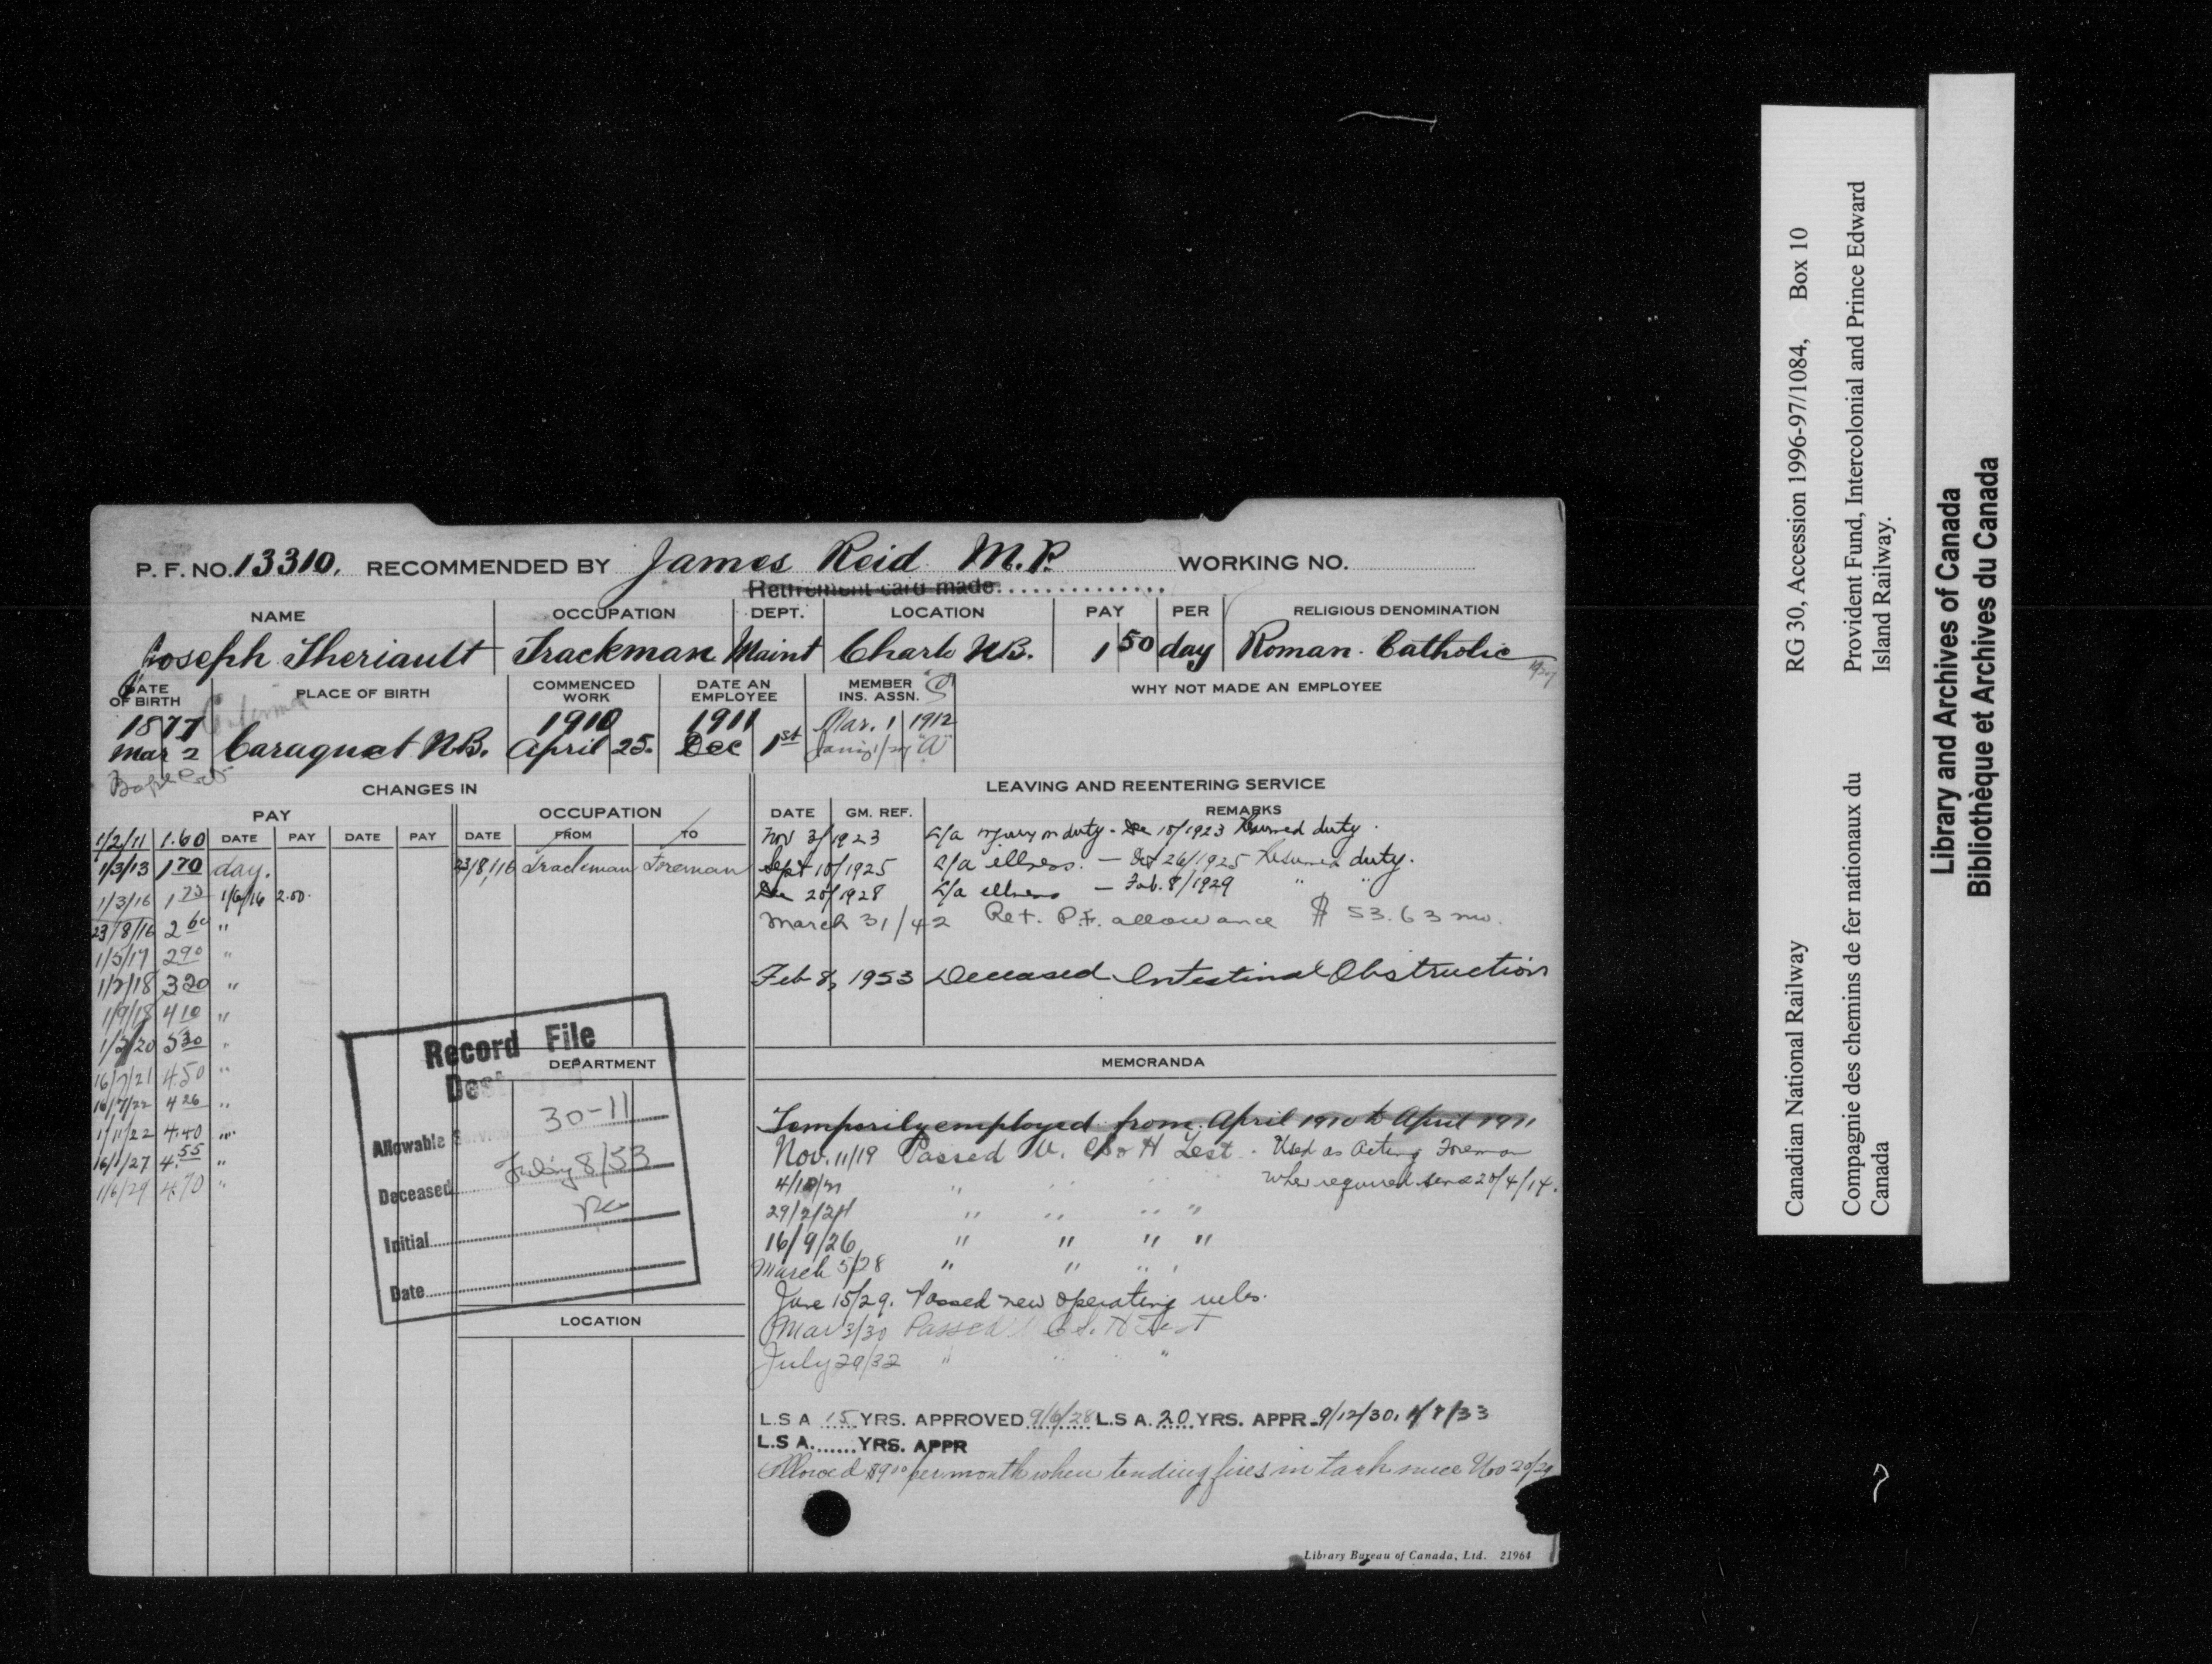 P. F. NO. 13310. RECOMMENDED BY James Reid M.P. WORKING NO.
Retirement card made
NAME OCCUPATION DEPT. LOCATION PAY PER RELIGIOUS DENOMINATION
Joseph Theriault Trackman Maint Charlo N.B. 1 50 day Roman Catholic
DATE OF BIRTH PLACE OF BIRTH COMMENCED WORK DATE AN EMPLOYEE MEMBER INS. ASSN. WHY NOT MADE AN EMPLOYEE
1877 1910 1911 Mar. 1 1912
Mar 2 Caraquet N.B. April 25. Dec 1st "A"
CHANGES IN
PAY OCCUPATION
DATE PAY DATE PAY DATE FROM TO
1/2/11 1.60
1/3/13 1 70 day. 23/8/16 Trackman Foreman
1/3/16 1 75 1/6/16 2.00
23/8/16 2 60 "
1/5/17 2 90 "
1/2/18 3 20 "
1/9/18 4 10 "
1/5/20 5 30 "
16/7/21 4.50 "
16/7/22 4 26 "
1/11/22 4.40 "
16/1/27 4.55 "
1/6/29 4.70 "
DEPARTMENT
Record File
Allowable
30-11
Deceased July 8/53
Initial
Date
LOCATION
LEAVING AND REENTERING SERVICE
DATE GM. REF. REMARKS
Nov 3/1923 L/a injury on duty - Dec 10/1923 Resumed duty.
Sept 10/1925 L/a illness. - Oct 26/1925 Resumed duty.
Dec 20/1928 L/a illness - Feb. 8/1929 " "
March 31/42 Ret. P.F. allowance $ 53.63 mo.
Feb 8, 1953 Deceased Intestinal Obstruction
MEMORANDA
Temporily employed from April 1910 to April 1911
Nov. 11/19 Passed V. C. & H Test. Used as Acting Foreman
when required since 20/4/14.
29/2/24 " " " "
16/9/26 " " " "
March 5/28 " " " "
June 15/29. Passed new operating rules.
Mar 3/30 Passed V C S. H Test
July 29/32 " " " "
L.S A 15 YRS. APPROVED 9/6/28 L.S A. 20 YRS. APPR 9/12/30. 4/7/33
L.S A. YRS. APPR
Allowed $9 00 per month when tending fires in tank since Nov 20/29
Library Bureau of Canada, Ltd. 21964
Canadian National Railway RG 30, Accession 1996-97/1084, Box 10
Compagnie des chemins de fer nationaux du Canada
Provident Fund, Intercolonial and Prince Edward Island Railway.
Library and Archives of Canada
Bibliothèque et Archives du Canada